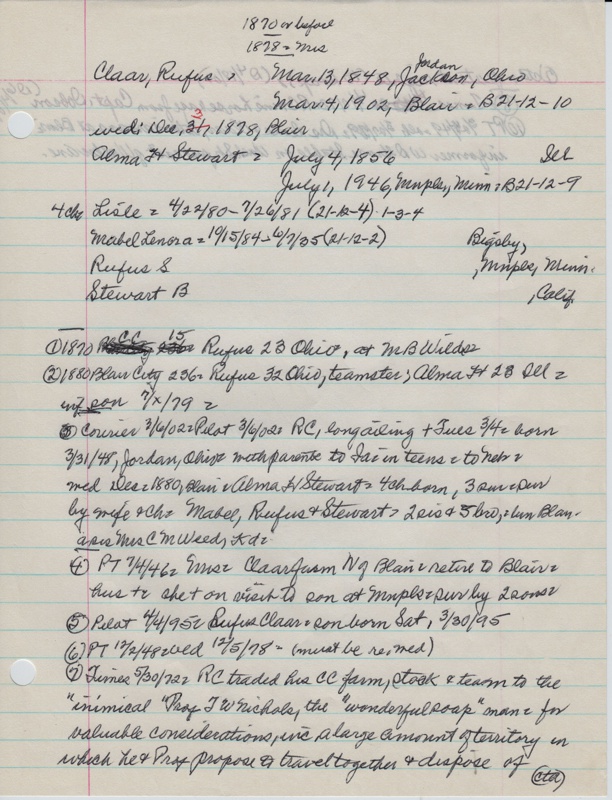 1870 or before
1878 = Mrs
Claar, Rufus = Mar. 13, 1848, Jackson, Ohio
Jordan
Mar 4, 1902, Blair = B21-12-10
wed: Dec, 31, 1878, Blair
Alma H Stewart = July 4, 1856 Ill
July 1, 1946, Mnpls, Minn = B21-12-9
4 ch: Lisle = 4/22/80 - 7/26/81 (21-12-4) 1-3-4
Mabel Lenora = 9/15/84 - 6/7/35 (21-12-2) Bigsby,
Rufus S , Mnpls, Minn.
Stewart B , Calif
① 1870 CC 15 Rufus 23 Ohio, at M B Wilds
② 1880 Blair City 236 = Rufus 32 Ohio, teamster; Alma H 23 Ill =
inf son 7/x/79 =
③ Courier 3/6/02 = Pilot 3/6/02 = RC, long ailing + Tues 3/4 = born
3/31/48, Jordan, Ohio = with parents to Ia in teens = to Neb =
wed Dec = 1880, Blair = Alma H Stewart = 4 ch born, 3 sur = sur
by wife & ch = Mabel, Rufus & Stewart = 2 sis & 3 bro, = bur Blair
a sis Mrs C M Weed,
④ PT 7/4/46 = Mrs = Claar farm N of Blair = retire to Blair =
hus + = she + on visit to son at Mnpls = sur by 2 sons =
⑤ Pilot 4/4/95 = Rufus Claar = son born Sat, 3/30/95
⑥ PT 12/2/48 = wed 12/5/78 = (must be re, wed)
⑦ Times 5/30/72 = RC traded his CC farm, stock & team to the
"inimical" Prof T W Nichols, the "wonderful soap" man = for
valuable considerations, inc a large amount of territory in
which he & Prof propose to travel together & dispose of
(ctd)